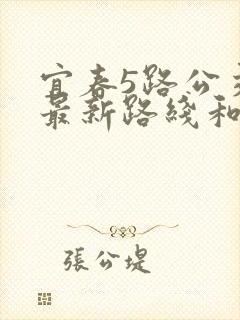 宜春5路公
最新路綫和
張公堤